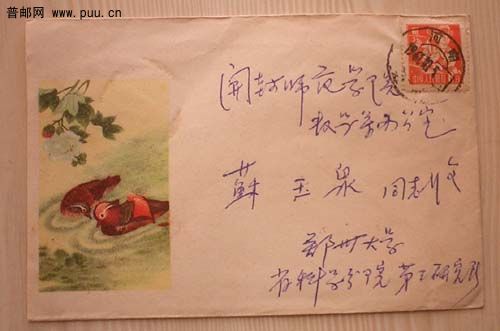 普邮网 www.puu.cn
開封师范学院
数学系办公室
蘇玉泉 同志收
鄭州大学
省科学分院第二研究所
河南